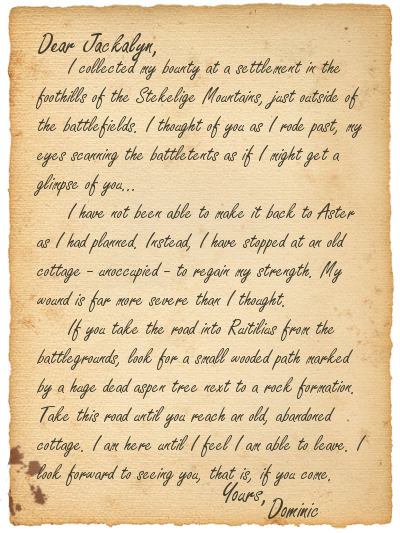 Dear Jackalyn,
I collected my bounty at a settlement in the
foothills of the Stekelige Mountains, just outside of
the battlefields. I thought of you as I rode past, my
eyes scanning the battletents as if I might get a
glimpse of you...
I have not been able to make it back to Aster
as I had planned. Instead, I have stopped at an old
cottage - unoccupied - to regain my strength. My
wound is far more severe than I thought.
If you take the road into Ruitilius from the
battlegrounds, look for a small wooded path marked
by a huge dead aspen tree next to a rock formation.
Take this road until you reach an old, abandoned
cottage. I am here until I feel I am able to leave. I
look forward to seeing you, that is, if you come.
Yours,
Dominic